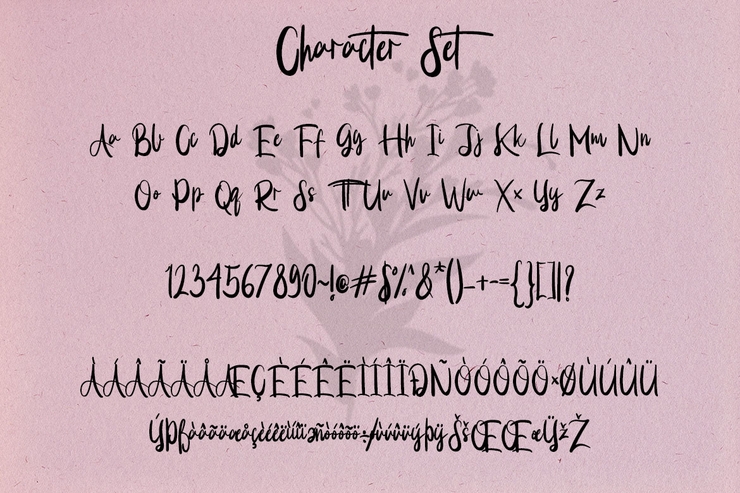 Character Set
Aa Bb Cc Dd Ee Ff Gg Hh Ii Jj Kk Ll Mm Nn
Oo Pp Qq Rr Ss Tt Uu Vv Ww Xx Yy Zz
1234567890~!@#$%^&*()_+-={}[]|?
ÀÁÂÃÄÅÆÇÈÉÊËÌÍÎÏÐÑÒÓÔÕÖ×ØÙÚÛÜ
ÝÞßàáâãäæåçèéêëìíîïðñòóôõö÷/ùúûüýþÿŠšŒŒœŸžŽ